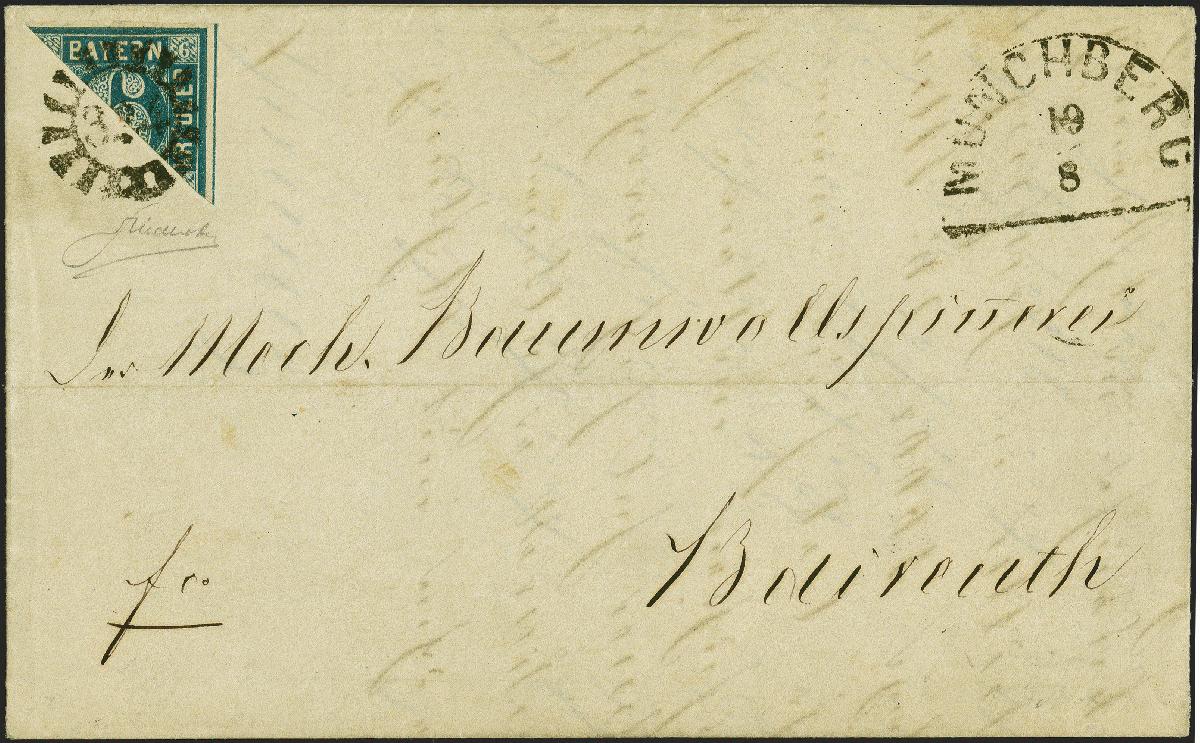 BAYERN 6
MÜNCHBERG
19
8
Der Mech. Baumwollspinnerei
Baireuth
fco